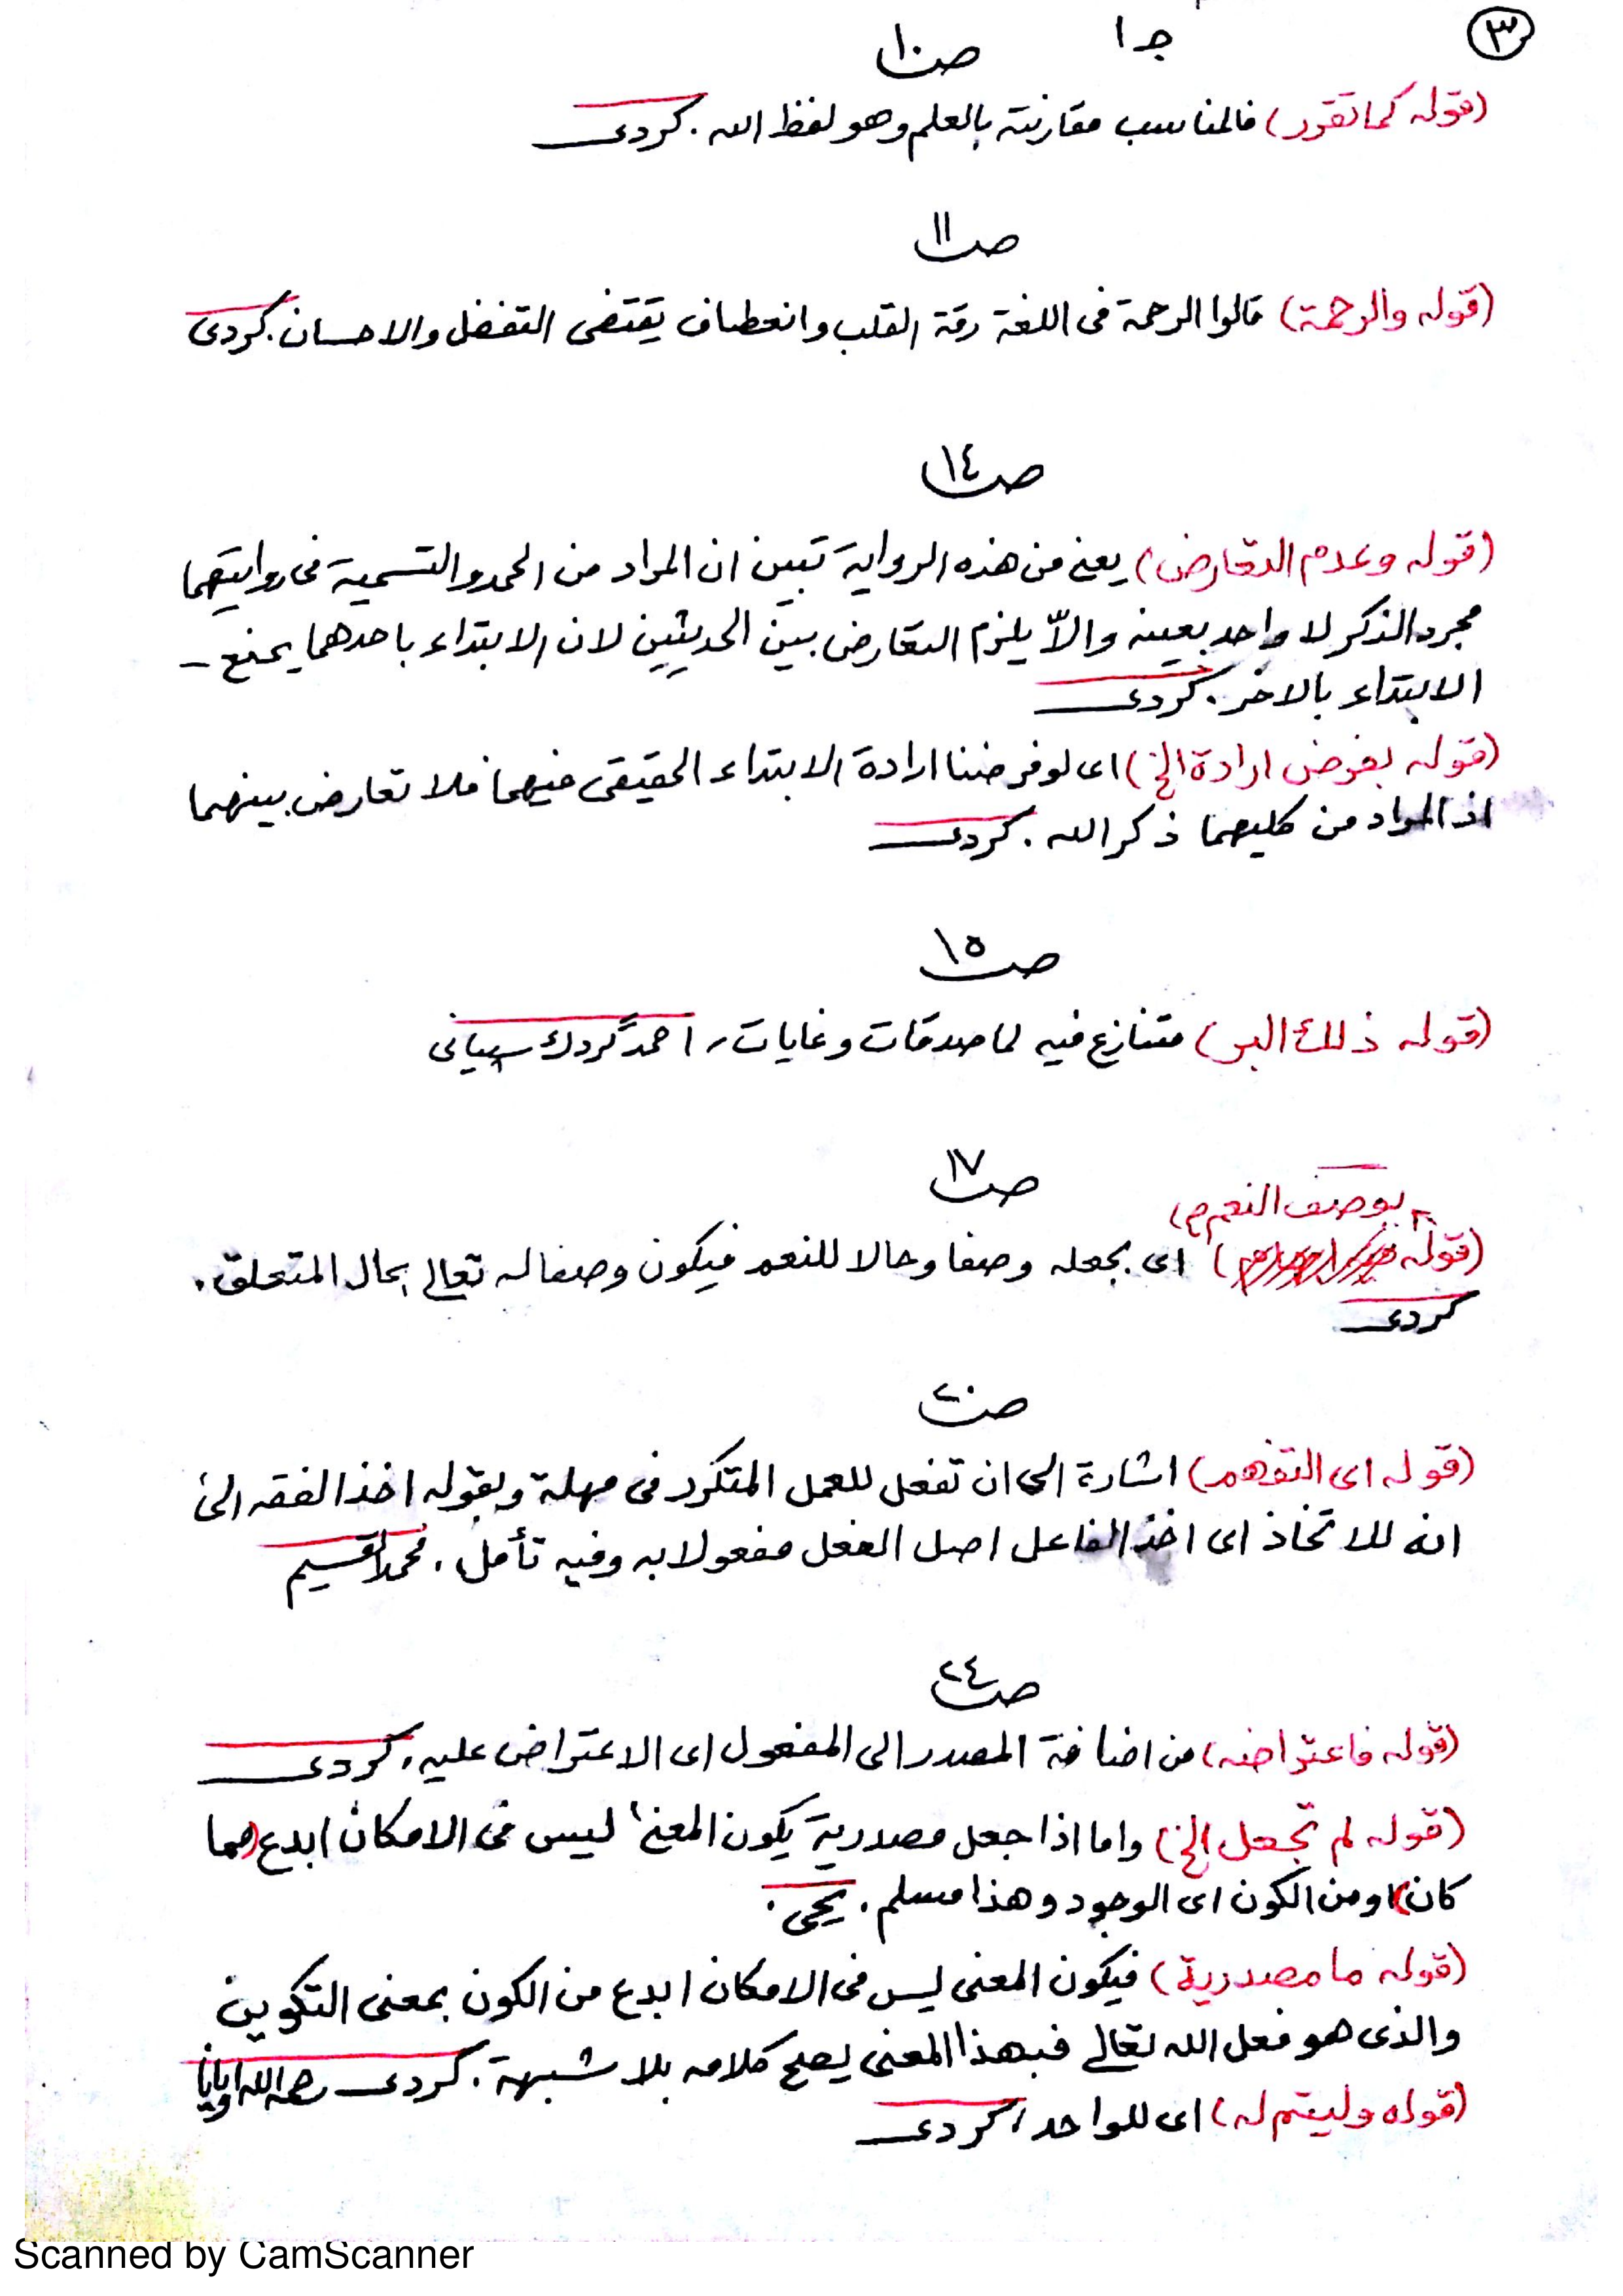 ٣
جـ ١
صـ١٠
(قوله كما تقرر) فالمناسب مقارنته بالعلم وهو لفظ الله . كردى
صـ١١
(قوله والرحمة) قالوا الرحمة فى اللغة رقة القلب وانعطاف يقتضى التفضل والاحسان . كردى
صـ١٤
(قوله وعدم التعارض) يعنى من هذه الرواية تبين ان المراد من الحمد والتسمية فى روايتهما
مجرد الذكر لا واحد بعينه والاّ يلزم التعارض بين الحديثين لان الابتداء باحدهما يمنع –
الابتداء بالاخر . كردى
(قوله بفرض ارادة الخ) اى لو فرضنا ارادة الابتداء الحقيقى فيهما فلا تعارض بينهما
اذ المراد من كليهما ذكر الله . كردى
صـ١٥
(قوله ذلك البر) متنازع فيه لما صدقات وغايات ، احمد گردك سپيانى
صـ١٧
بوصف النعم م)
(قوله ) اى بجعله وصفا وحالا للنعم فيكون وصفا له تعالى بحال المتعلق .
كردى
صـ٢٠
(قوله اى التفهم) اشارة الى ان تفعل للعمل المتكرر فى مهلة وبقوله اخذ الفقه الى
انه للاتخاذ اى اخذ الفاعل اصل الفعل مفعولا به وفيه تأمل . محمد القسيم
صـ٢٤
(قوله فاعتراضه) من اضافة المصدر الى المفعول اى الاعتراض عليه . كردى
(قوله لم تجعل الخ) واما اذا جعل مصدرية يكون المعنى ليس فى الامكان ابدع (مما
كان) او من الكون اى الوجود وهذا مسلم . يحيى .
(قوله ما مصدرية) فيكون المعنى ليس فى الامكان ابدع من الكون بمعنى التكوين
والذى هو فعل الله تعالى فبهذا المعنى يصح كلامه بلا شبهة . كردى رحمه الله وايانا
(قوله وليتم له) اى للواحد ، كردى
Scanned by CamScanner